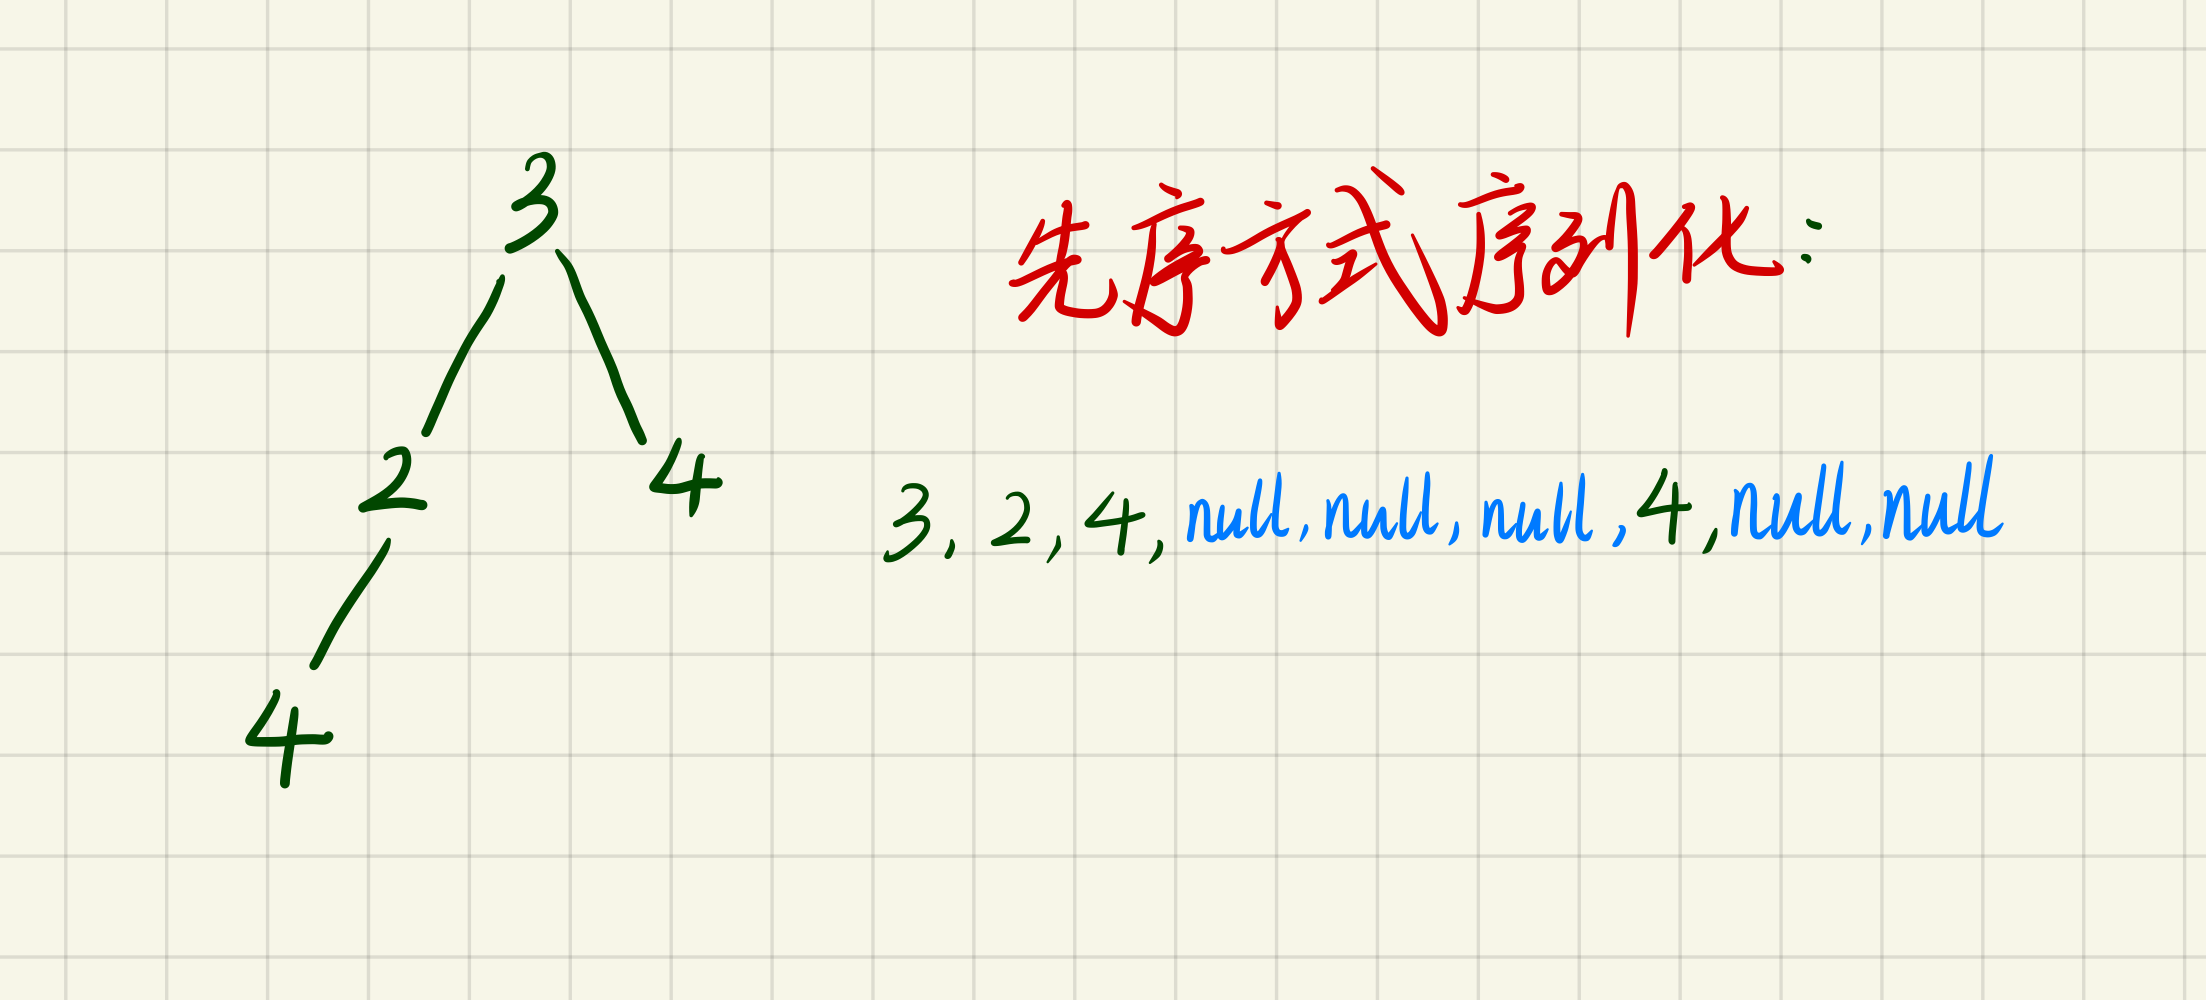 3
先序方式序列化:
2
4
3, 2, 4, null, null, null, 4, null, null
4